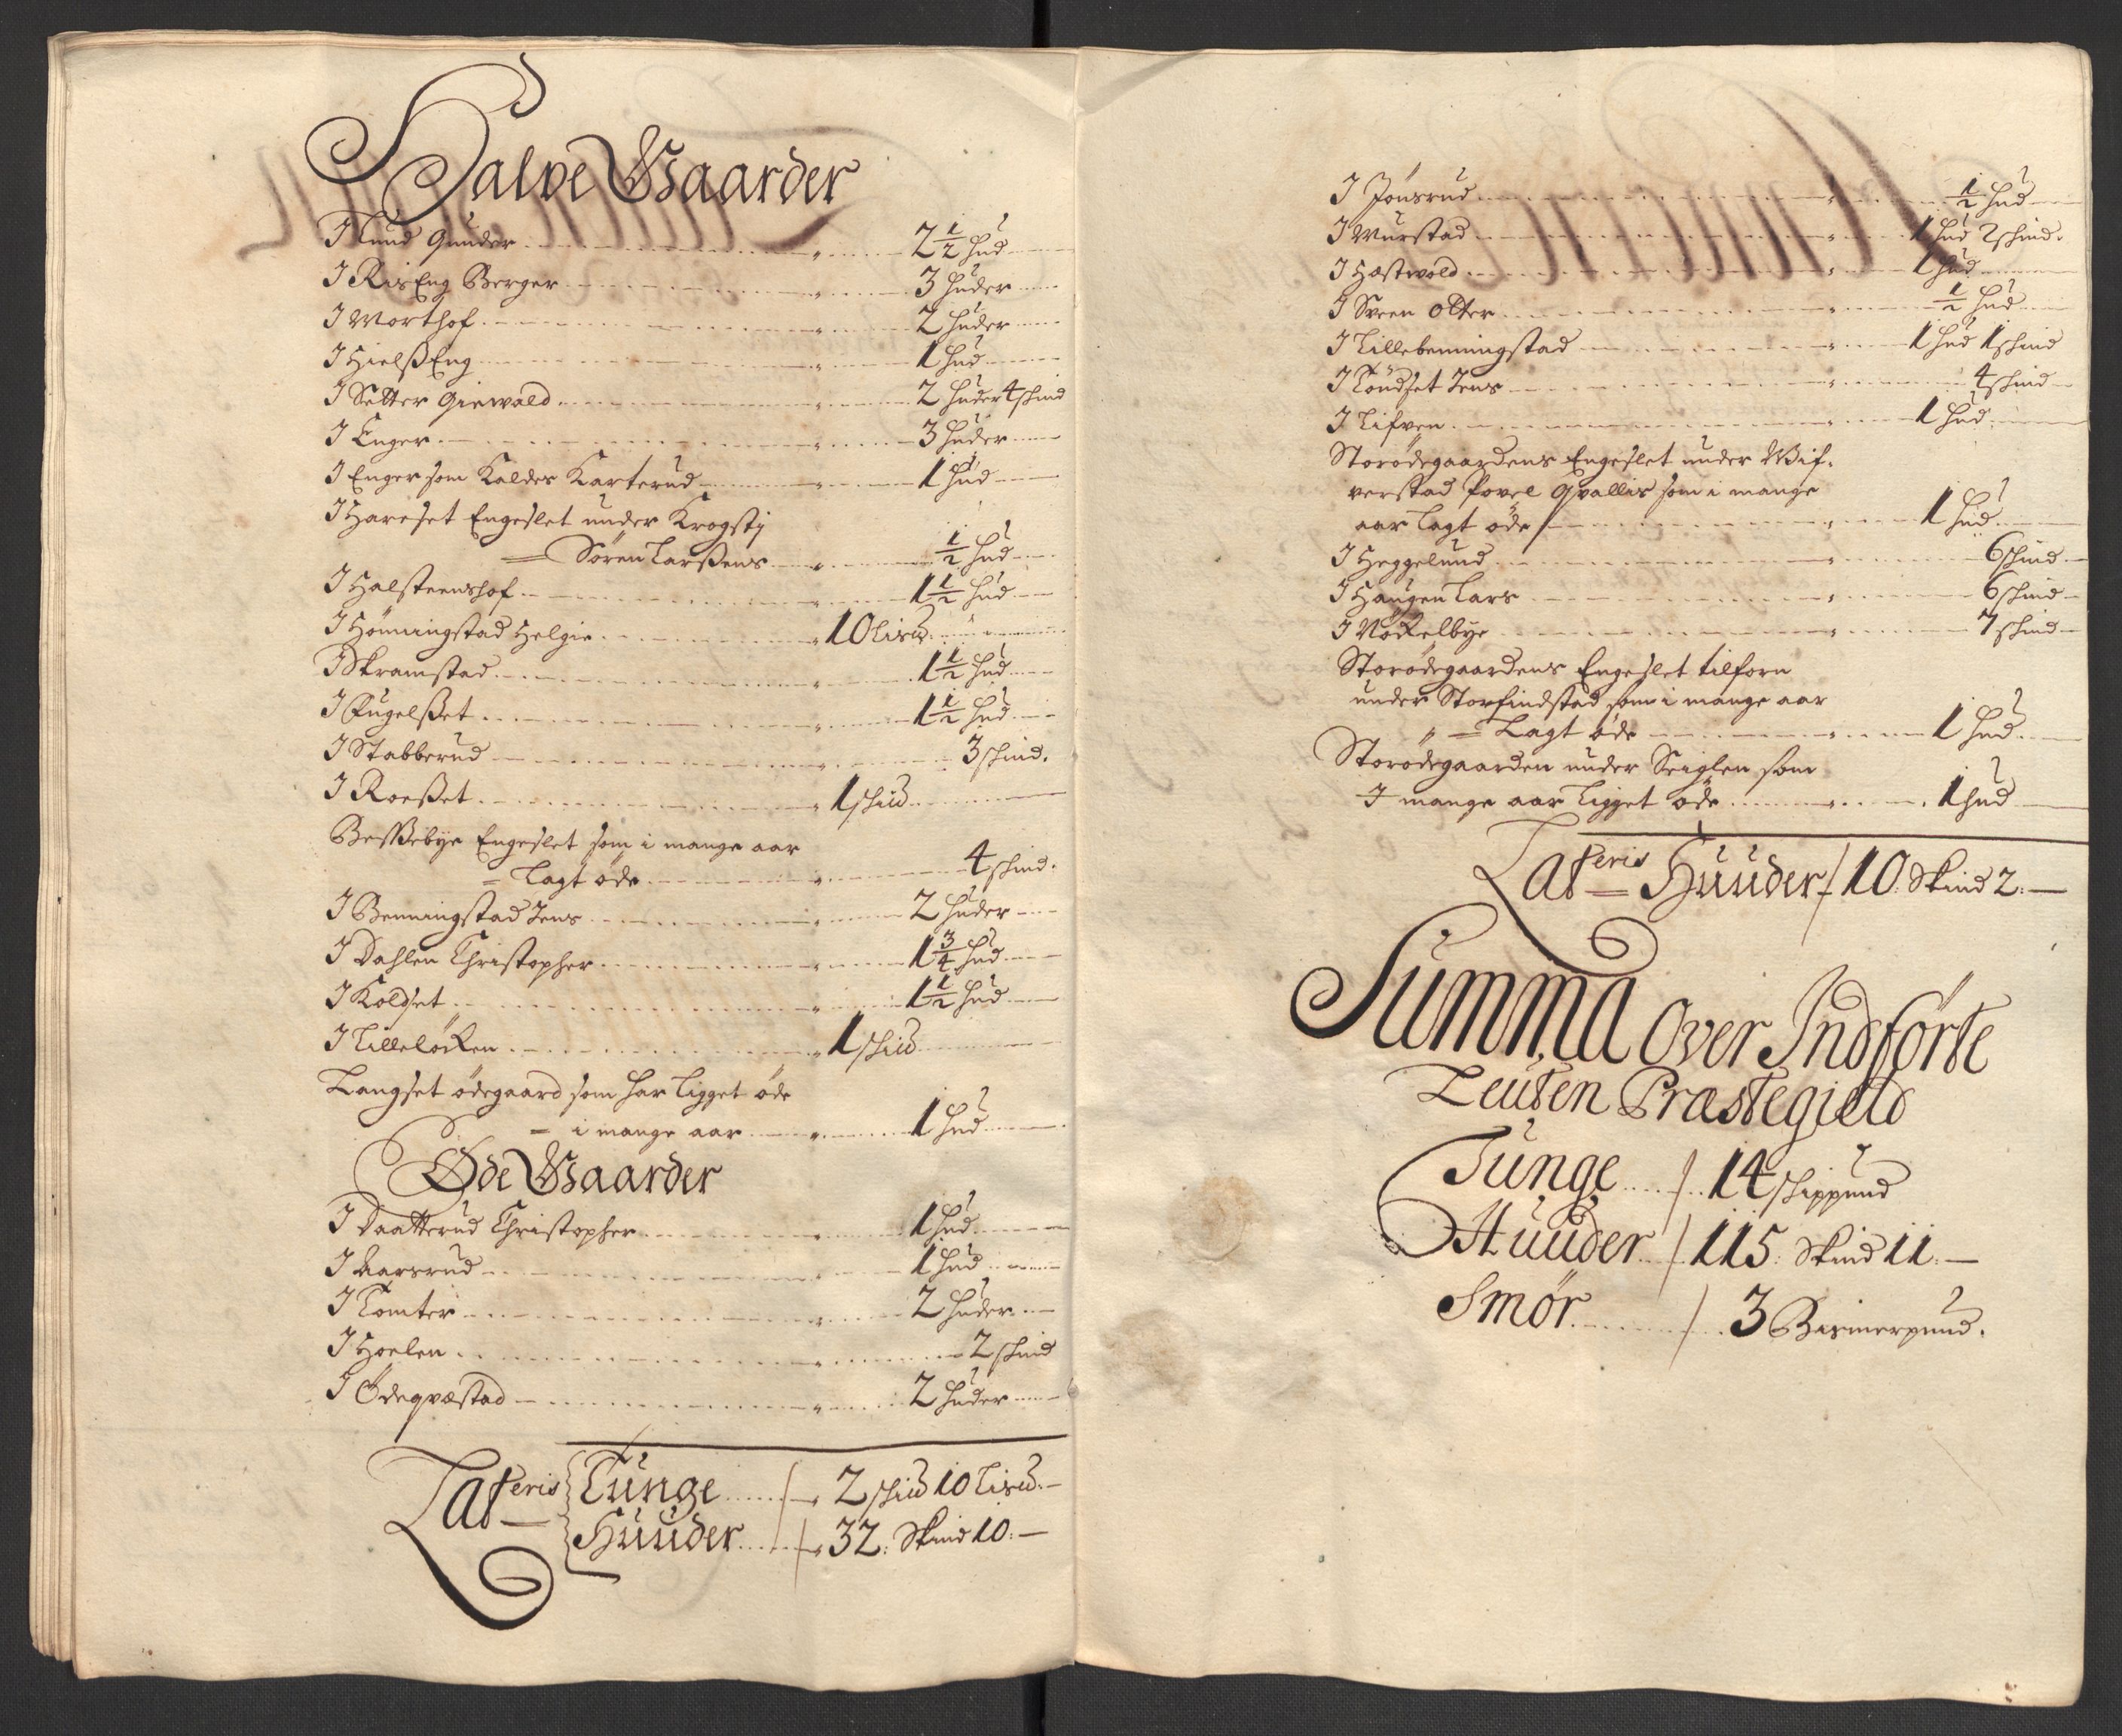 Halve Gaarder
I Lund Gunder 2 1/2 hud
I RisEng Berger 3 huder
I Worthof 2 huder
I HielßEng 1 hud
I Setter Giewold 2 huder 4 skind
I Enger 3 huder
I Enger som Kaldes Karterud 1 hud
I Hareset Engeslet under Krogstj
= Søren Larßens 1/2 hud
I Halsteenshof 1 1/2 hud
I Hømmingstad Helgie 10 Lis℔
I Skramstad 1 1/2 hud
I Fugelßet 1 1/2 hud
I Stabberud 3 skind.
I Roeßet 1 ski℔
Beßebye Engeslet som i mange aar
= Lagt øde 4 skind.
I Benningstad Jens 2 huder
I Dahlen Christopher 1 3/4 hud
I Koldset 1 1/2 hud
I Lilleløcken 1 ski℔
Langset ødegaard som har Ligget øde
= i mange aar 1 hud
Øde Gaarder
I Daatterud Christopher 1 hud
I Aarsrud 1 hud
I Tomter 2 huder
I Hoelen 2 skind
I Ødeqvæstad 2 huder
Lateris Tunge 2 ski℔ 10 Lis℔
Huuder 32: Skind 10:
I Jønsrud 1/2 hud
I Wurstad 1 hud 2 skind.
I Hæstwold 1 hud
I Sveen Otter 1/2 hud
I Lillebenningstad 1 hud 1 skind
I Tøndset Jens 4 skind
I Lifven 1 hud
Storødegaardens Engeslet under Wif-
verstad Povel Qvallis som i mange
aar Lagt øde 1 hud
I Heggelund 6 skind
I Haugen Lars 6 skind
I Nøckelbye 7 skind
Storødegaardens Engeslet tilforn
under Storfindstad som i mange aar
= Lagt øde 1 hud
Storødegaarden under Seiglen som
I mange aar Ligget øde 1 hud
Lateris Huuder 10: Skind 2:
Summa Over Indførte
Leuten Præstegield
Tunge 14 skippund
Huuder 115: Skind 11:
Smør 3 Bismerpund.